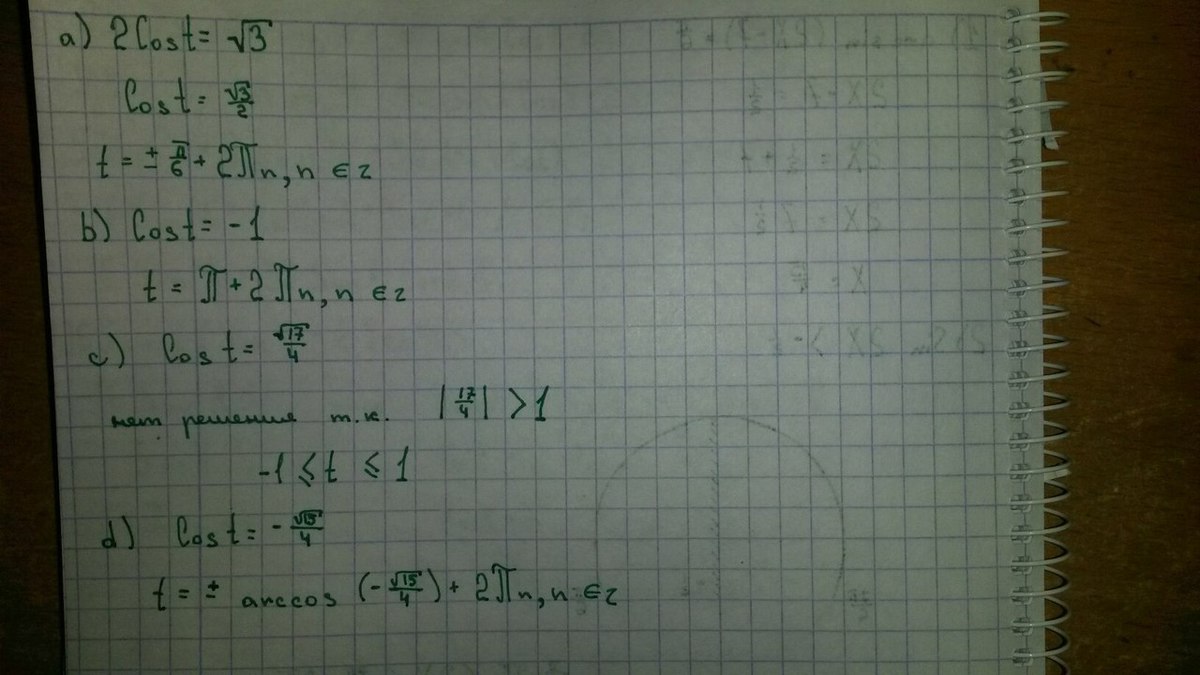 a) 2Cost = √3
Cost = √3/2
t = ± π/6 + 2πn, n ∈ z
b) Cost = -1
t = π + 2πn, n ∈ z
c) Cost = √17/4
нет решения т.к. |17/4| > 1
-1 ≤ t ≤ 1
d) Cost = - √15/4
t = ± arccos (-√15/4) + 2πn, n ∈ z